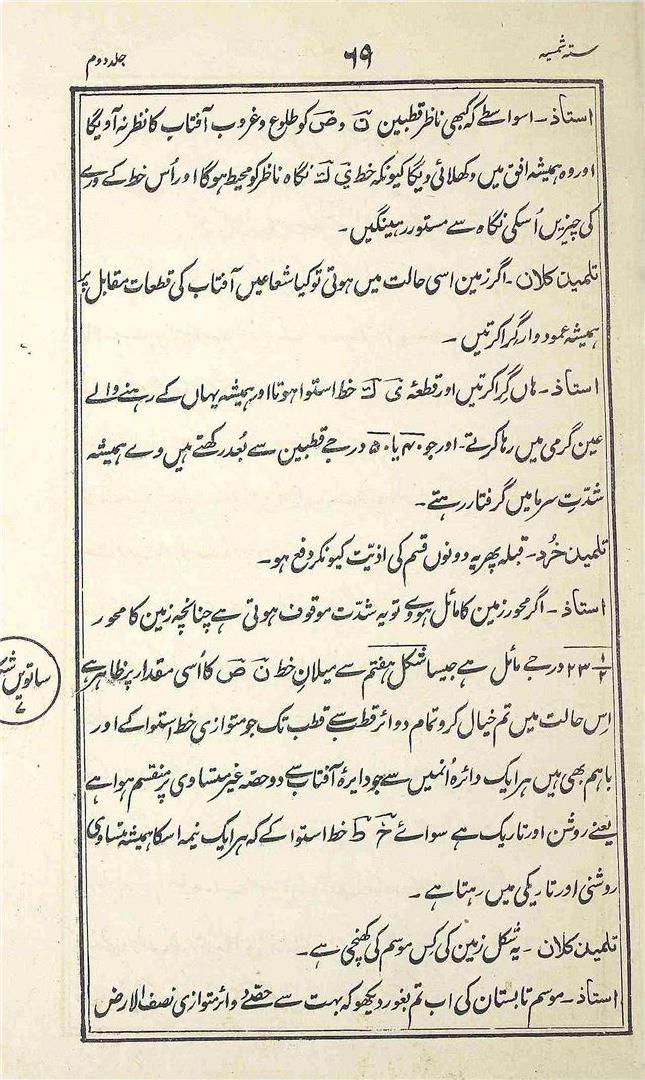 ستہ شمسیہ ۶۹ جلد دوم
استاذ۔ اسواسطے کہ کبھی ناظر قطبین ن و ص کو طلوع و غروب آفتاب کا نظر نہ آویگا
اور وہ ہمیشہ افق میں دکھلائی دیگا کیونکہ خط ی ک نگاہ ناظر کو محیط ہوگا اور اُس خط کے ورے
کی چیزیں اُسکی نگاہ سے مستور رہینگیں۔
تلمیذ کلان۔ اگر زمین اسی حالت میں ہوتی تو کیا شعاعیں آفتاب کی قطعات مقابل پر
ہمیشہ عمودوار گرا کرتیں۔
استاذ۔ ہاں گرا کرتیں اور قطعۂ ی ک خط استوا ہوتا اور ہمیشہ یہاں کے رہنے والے
عین گرمی میں رہا کرتے۔ اور جو ۴۰ یا ۵۰ درجے قطبین سے بُعد رکھتے ہیں وے ہمیشہ
شدّت سرما میں گرفتار رہتے۔
تلمیذ خُرد۔ قبلہ پھر یہ دونوں قسم کی اذیّت کیونکر دفع ہو۔
استاذ۔ اگر محور زمین کا مائل ہووے تو یہ شدّت موقوف ہوتی ہے چنانچہ زمین کا محور
۲۳ ۱/۲ درجے مائل ہے جیسا شکل ہفتم سے میلان خط ن ص کا اُسی مقدار پر ظاہر ہے
ساتویں شکل
۷
اِس حالت میں تم خیال کرو تمام دوائر قطب سے قطب تک جو متوازی خط استوا کے اور
باہم بھی ہیں ہر ایک دائرہ اُنمیں سے جو دایرۂ آفتاب سے دو حصہ غیر متساوی پر منقسم ہوا ہے
یعنے روشن اور تاریک ہے سوائے خ ط خط استوا کے کہ ہر ایک نیمہ اسکا ہمیشہ متساوی
روشنی اور تاریکی میں رہتا ہے۔
تلمیذ کلان۔ یہ شکل زمین کی کِس موسم کی کھنچی ہے۔
استاذ۔ موسم تابستان کی اب تم بغور دیکھو کہ بہت سے حصّے دوائر متوازی نصف الارض